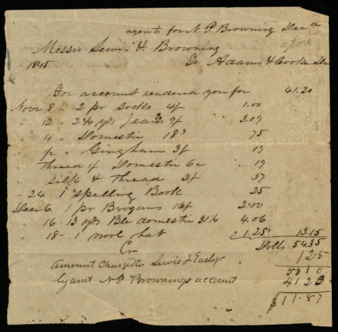 agent for N P Browning Decd
store
Messrs Lewis H. Browning
1845 To Adams & Cooke Dr
For account rendered you for 41.20
Novr 8 - 2 pr Socks 4/ 1.00
" 12 - 2¾ yds Jeans 9/ 3.09
" 4 " Domestic 18¾ 75
" Gingham 3/ 19
Thread & Domestic 6c 19
Silk & Thread 3/ 37
" 24 1 Spelling Book 25
Decr 6 1 pr Brogans 16/ 2.00
" 16 - 13 yds Ble domestic 31¼ 4.06
" 18 - 1 wool hat 1.25 13.15
Dolls 54.35
Cr
Amount Charged to Lewis & Early 1.25
53 10
By amt N P Brownings account 41 23
$11.87